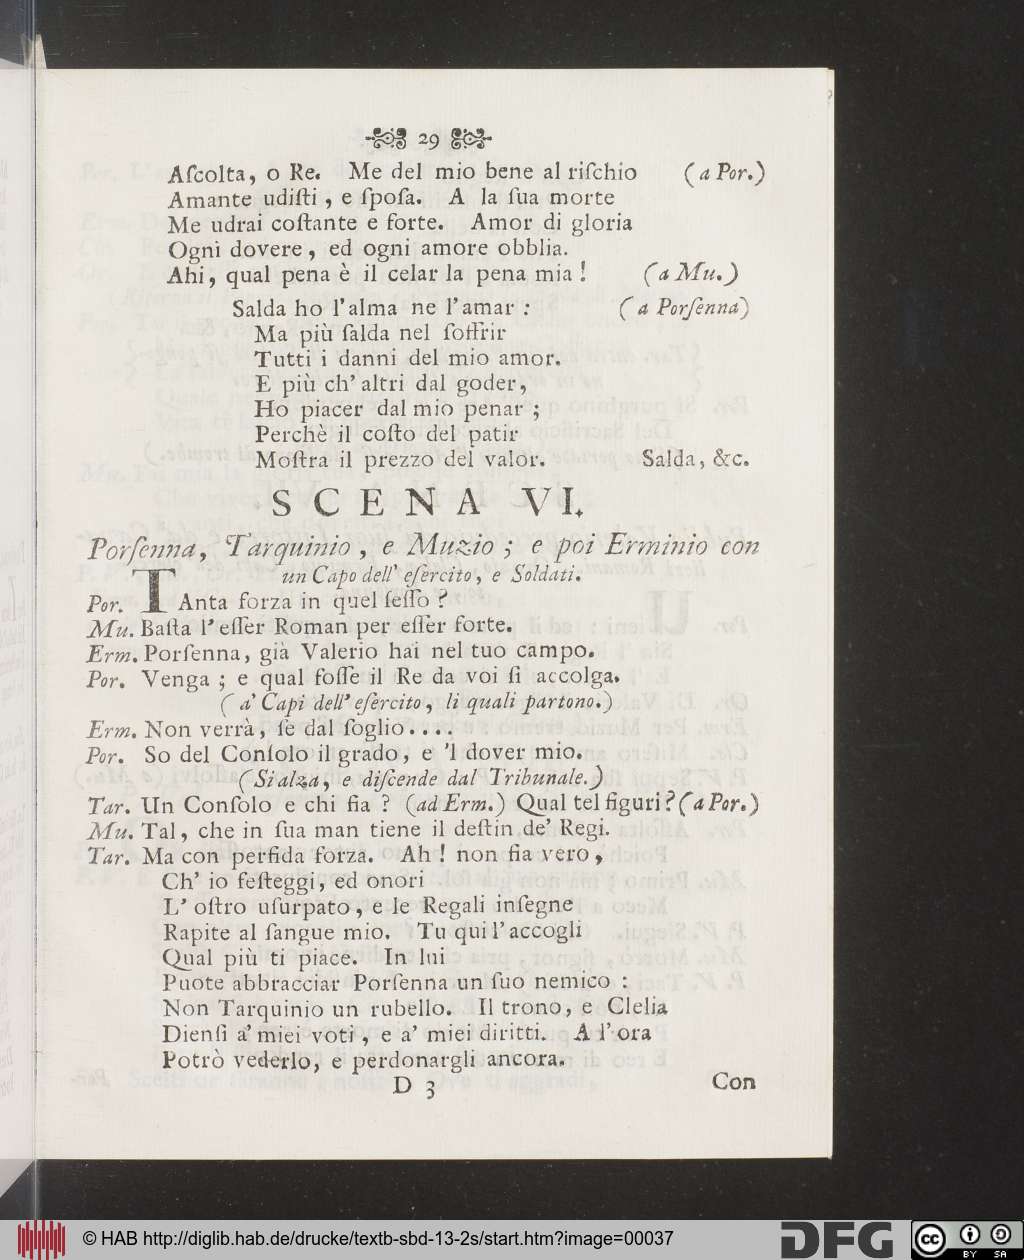 29
Aſcolta, o Re. Me del mio bene al riſchio (a Por.)
Amante udiſti, e ſpoſa. A la ſua morte
Me udrai coſtante e forte. Amor di gloria
Ogni dovere, ed ogni amore obblia.
Ahi, qual pena è il celar la pena mia! (a Mu.)
Salda ho l'alma ne l'amar: (a Porſenna)
Ma più ſalda nel ſoffrir
Tutti i danni del mio amor.
E più ch' altri dal goder,
Ho piacer dal mio penar;
Perchè il coſto del patir
Moſtra il prezzo del valor. Salda, &c.
SCENA VI.
Porſenna, Tarquinio, e Muzio; e poi Erminio con
un Capo dell' eſercito, e Soldati.
Por. TAnta forza in quel ſeſſo?
Mu. Baſta l'eſſer Roman per eſſer forte.
Erm. Porſenna, già Valerio hai nel tuo campo.
Por. Venga; e qual foſſe il Re da voi ſi accolga.
(a' Capi dell' eſercito, li quali partono.)
Erm. Non verrà, ſe dal ſoglio....
Por. So del Conſolo il grado, e 'l dover mio.
(Si alza, e diſcende dal Tribunale.)
Tar. Un Conſolo e chi fia? (ad Erm.) Qual tel figuri? (a Por.)
Mu. Tal, che in ſua man tiene il deſtin de' Regi.
Tar. Ma con perfida forza. Ah! non fia vero,
Ch' io feſteggi, ed onori
L' oſtro uſurpato, e le Regali inſegne
Rapite al ſangue mio. Tu qui l'accogli
Qual più ti piace. In lui
Puote abbracciar Porſenna un ſuo nemico:
Non Tarquinio un rubello. Il trono, e Clelia
Dienſi a' miei voti, e a' miei diritti. A l'ora
Potrò vederlo, e perdonargli ancora.
D 3 Con
© HAB http://diglib.hab.de/drucke/textb-sbd-13-2s/start.htm?image=00037
DFG
cc BY SA